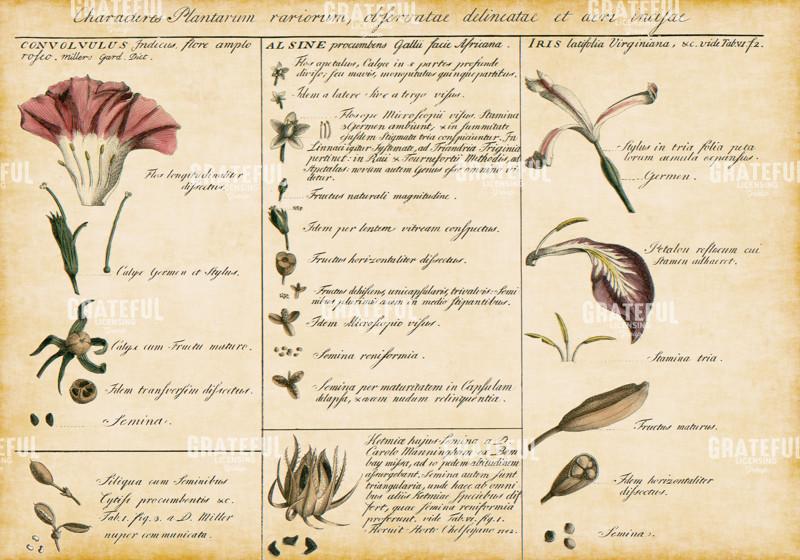 Characteres Plantarum rariorum, observatae delineatae et aeri incisae
CONVOLVULUS Indicus, flore amplo
roseo. Millers Gard. Dict.
Flos longitudinaliter
dissectus.
Calyx Germen et Stylus.
Calyx cum Fructu maturo.
Idem transversim dissectus.
Semina.
Siliqua cum Seminibus
Cytisi procumbentis &c.
Tab. 1. fig. 3. a D. Miller
nuper communicata.
ALSINE procumbens Gallii facie Africana.
Flos apetalus, Calyx in 5 partes profunde
divisus; seu mavis, monopetalus quinquepartitus.
Idem a latere sive a tergo visus.
Flos ope Microscopii visus. Stamina
3 Germen ambiunt, & in summitate
ejusdem Stigmata tria conspiciuntur. In
Linnaei igitur Systemate, ad Triandria Triginia
pertinet: in Raii & Tournefortii Methodis, ad
Apetalas: novum autem Genus esse omnino vi
detur.
Fructus naturali magnitudine.
Idem per lentem vitream conspectus.
Fructus horizontaliter dissectus.
Fructus dehiscens, unicapsularis, trivalvis: Semi
nibus plurimis in medio stipantibus.
Idem Microscopio visus.
Semina reniformia.
Semina per maturitatem in Capsulam
delapsa, & axem nudum relinquentia.
Ketmia hujus Semina a D.
Carolo Manningham ex Bom
bay missa, ad 10 pedem altitudinem
assurgebant. Semina autem sunt
triangularia, unde haec ab omni
bus aliis Ketmiae speciebus dif
fert, quae semina reniformia
proferunt. vide Tab. vi. fig. 1.
Floruit Horto Chelseiano nov.
IRIS latifolia Virginiana, &c. vide Tab. vi. f. 2.
Stylus in tria folia peta
lorum aemula expansus.
Germen.
Petalon reflexum cui
Stamen adhaeret.
Stamina tria.
Fructus maturus.
Idem horizontaliter
dissectus.
Semina.
GRATEFUL
LICENSING